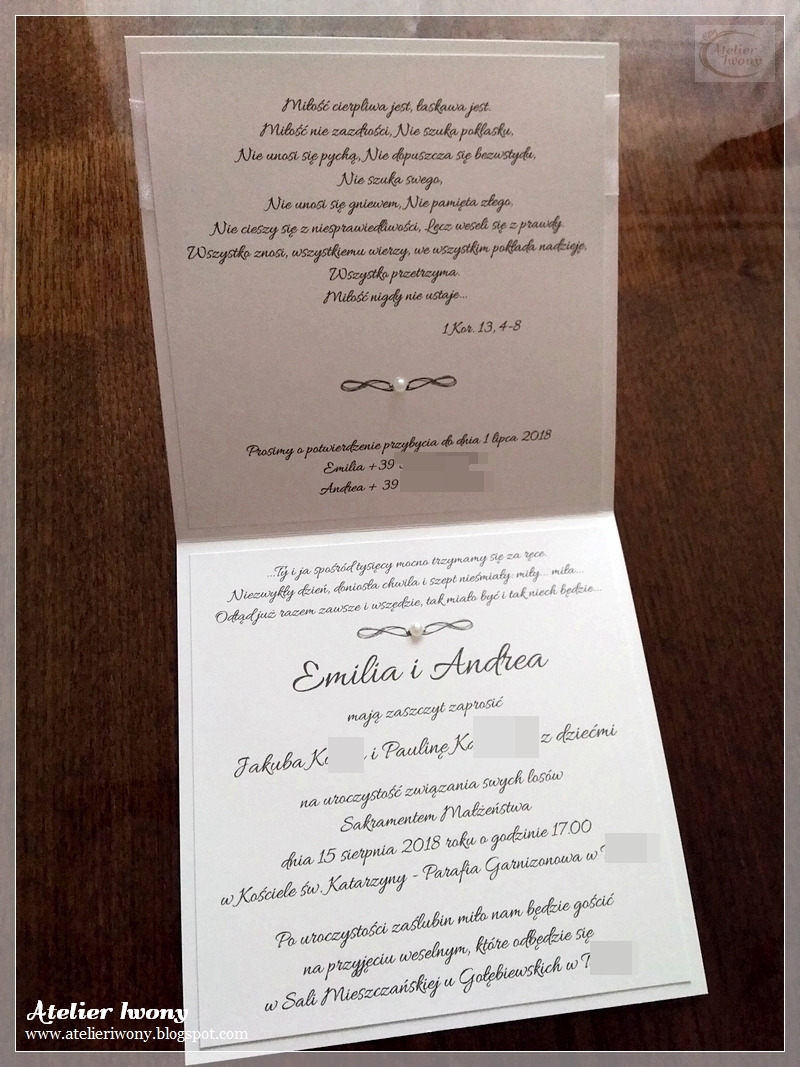 Atelier
Iwony
Miłość cierpliwa jest, łaskawa jest.
Miłość nie zazdrości, Nie szuka poklasku,
Nie unosi się pychą, Nie dopuszcza się bezwstydu,
Nie szuka swego,
Nie unosi się gniewem, Nie pamięta złego,
Nie cieszy się z niesprawiedliwości, Lecz weseli się z prawdy.
Wszystko znosi, wszystkiemu wierzy, we wszystkim pokłada nadzieję,
Wszystko przetrzyma.
Miłość nigdy nie ustaje...
1 Kor. 13, 4-8
Prosimy o potwierdzenie przybycia do dnia 1 lipca 2018
Emilia +39
Andrea + 39
...Ty i ja spośród tysięcy mocno trzymamy się za ręce.
Niezwykły dzień, doniosła chwila i szept nieśmiały: miły... miła...
Odtąd już razem zawsze i wszędzie, tak miało być i tak niech będzie...
Emilia i Andrea
mają zaszczyt zaprosić
Jakuba Ko , i Paulinę Ko z dziećmi
na uroczystość związania swych losów
Sakramentem Małżeństwa
dnia 15 sierpnia 2018 roku o godzinie 17.00
w Kościele św. Katarzyny - Parafia Garnizonowa w T
Po uroczystości zaślubin miło nam będzie gościć
na przyjęciu weselnym, które odbędzie się
w Sali Mieszczańskiej u Gołębiewskich w T
Atelier Iwony
www.atelieriwony.blogspot.com